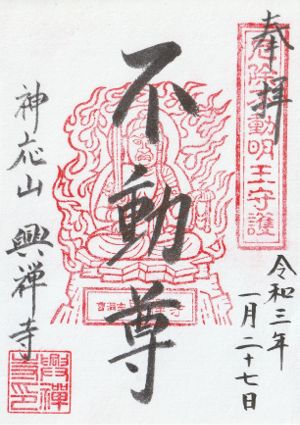 奉拝
厄除不動明王守護
令和三年
一月二十七日
不動尊
神応山 興禅寺
興禅寺印